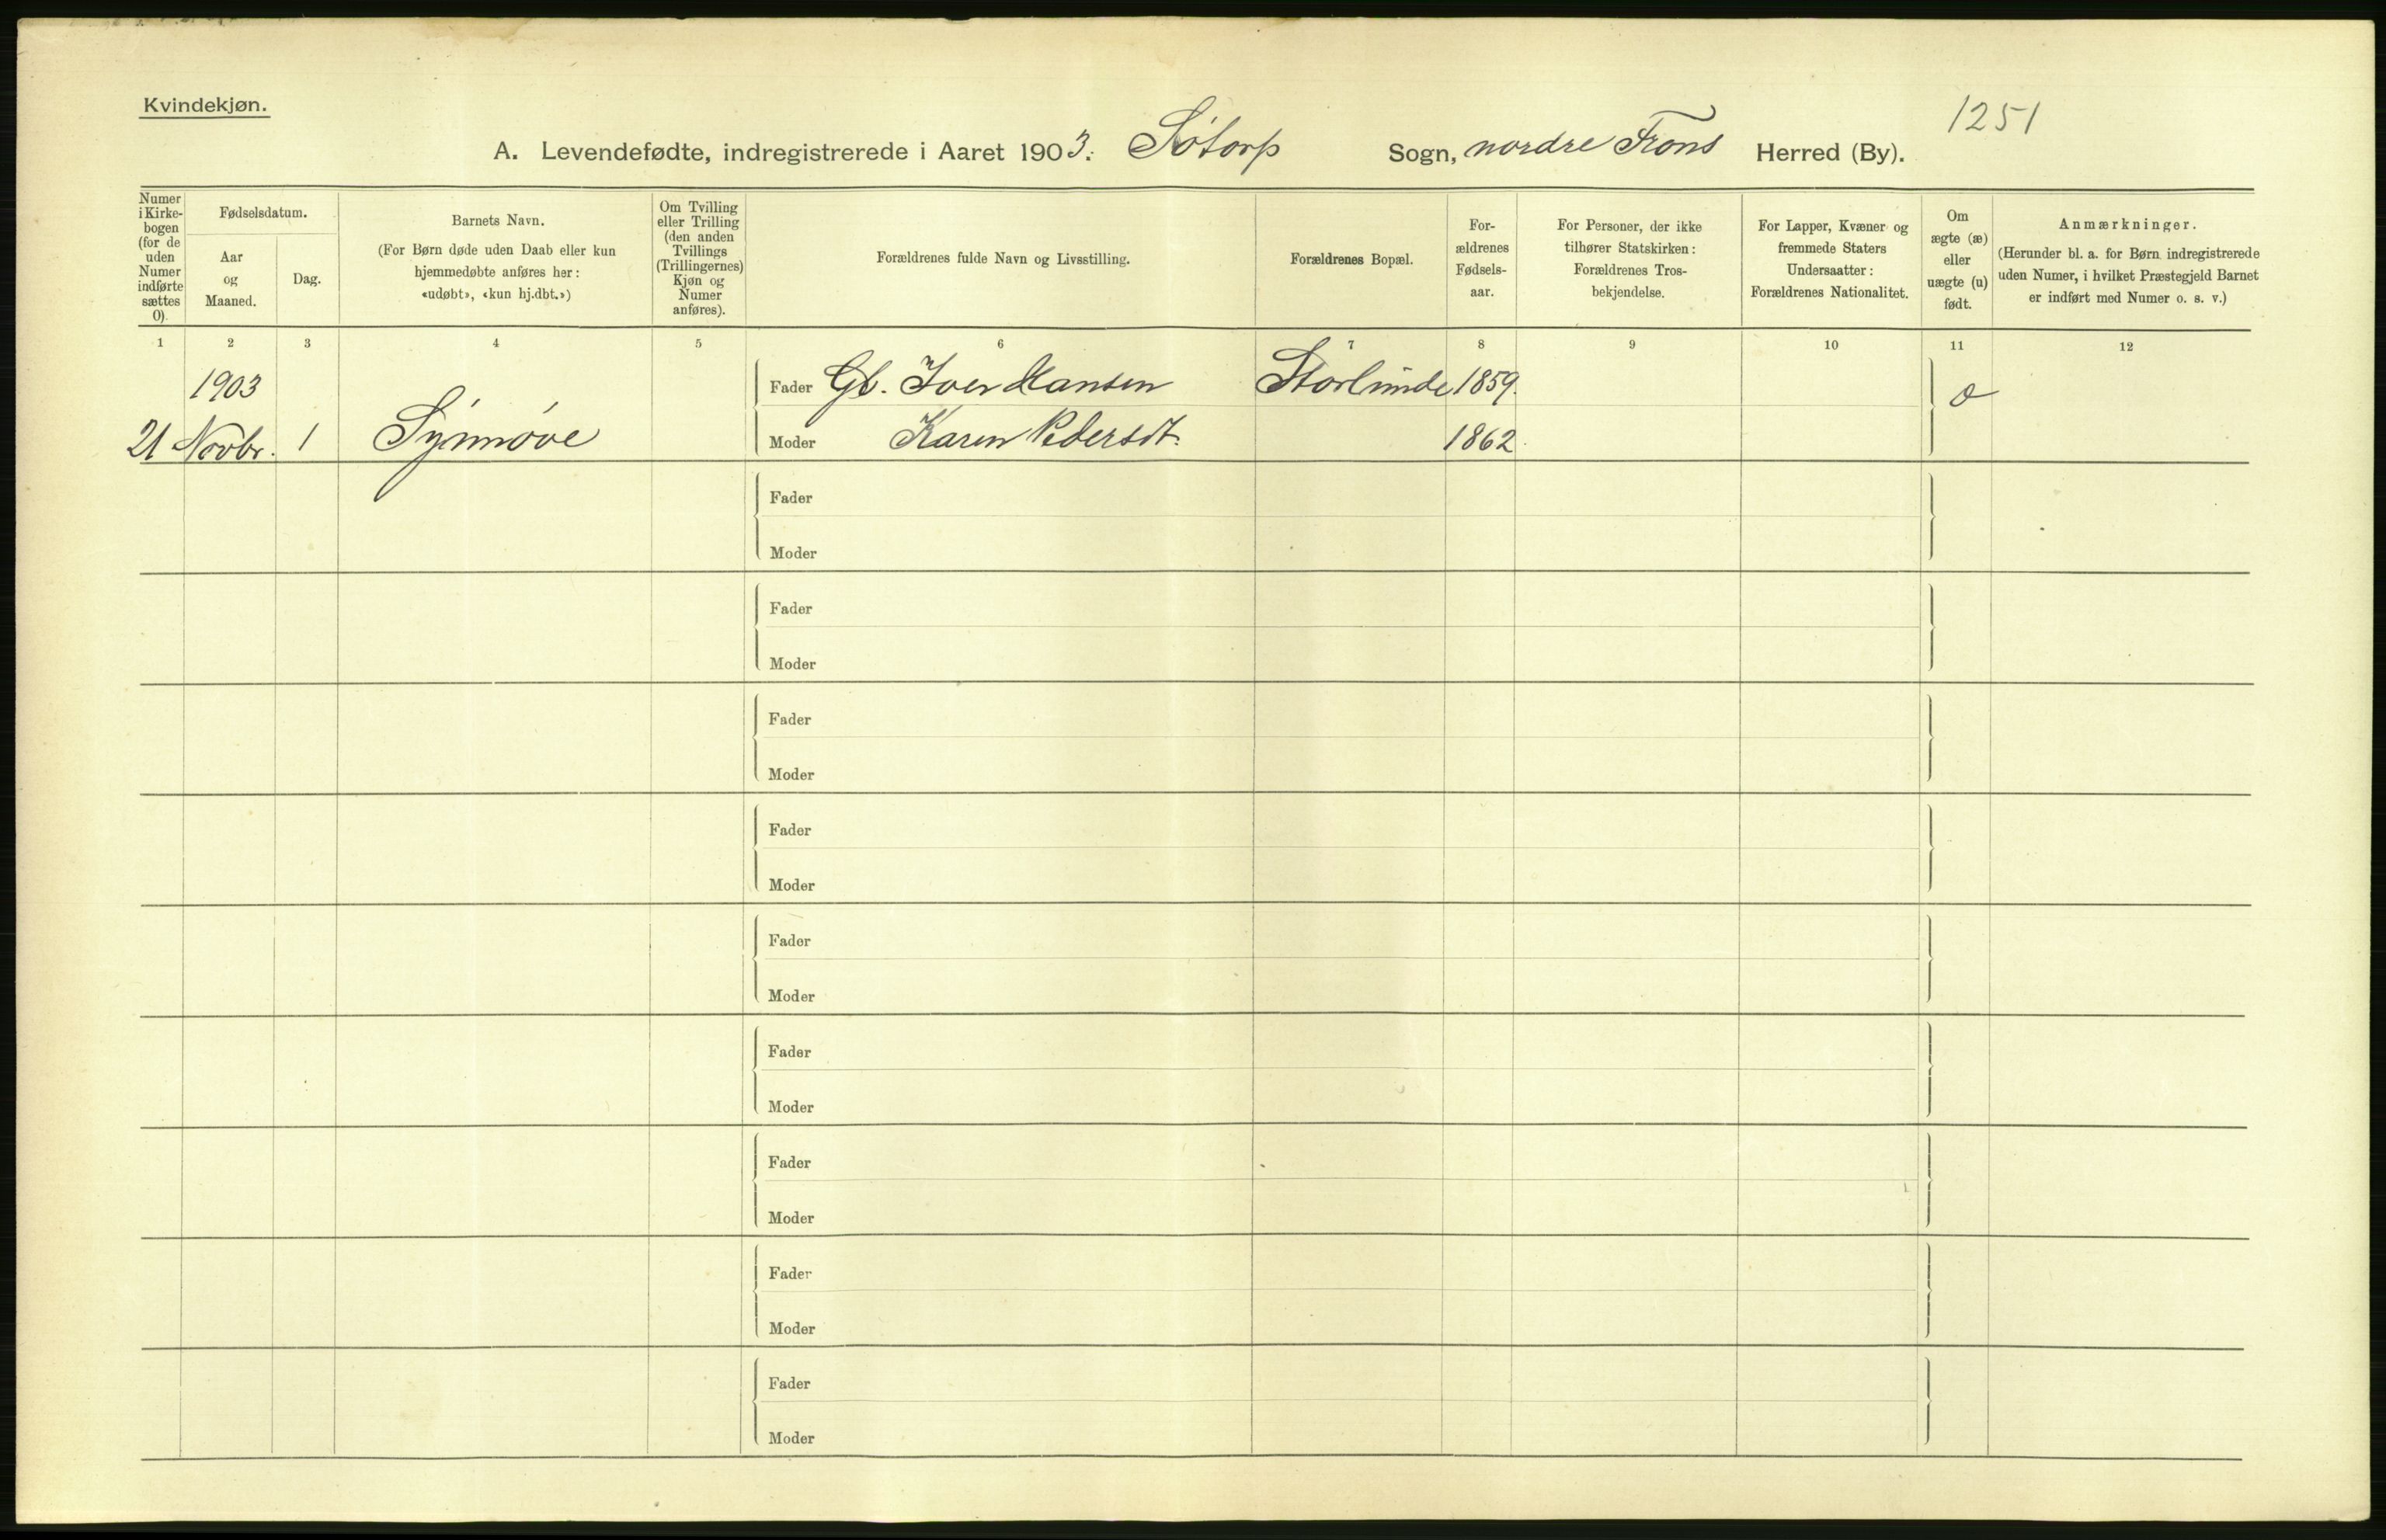 Kvindekjøn.
1251
A. Levendefødte, indregistrerede i Aaret 1903. Sötorp Sogn, nordre Frons Herred (By).
Numer i Kirke-bogen (for de uden Numer indførte sættes 0).
Fødselsdatum.
Aar og Maaned.
Dag.
Barnets Navn.
(For Børn døde uden Daab eller kun
hjemmedøbte anføres her:
«udøbt», «kun hj.dbt.»)
Om Tvilling
eller Trilling
(den anden
Tvillings
(Trillingernes)
Kjøn og
Numer
anføres).
Forældrenes fulde Navn og Livsstilling.
Forældrenes Bopæl.
For-
ældrenes
Fødsels-
aar.
For Personer, der ikke
tilhører Statskirken:
Forældrenes Tros-
bekjendelse.
For Lapper, Kvæner og
fremmede Staters
Undersaatter:
Forældrenes Nationalitet.
Om
ægte (æ)
eller
uægte (u)
født.
Anmærkninger.
(Herunder bl. a. for Børn indregistrerede
uden Numer, i hvilket Præstegjeld Barnet
er indført med Numer o. s. v.)
1 2 3 4 5 6 7 8 9 10 11 12
1903 Fader Gb. Iver Hansen Storlunde 1859.
21 Novbr. 1 Synnöve Moder Karen Pedersdt. 1862
Fader
Moder
Fader
Moder
Fader
Moder
Fader
Moder
Fader
Moder
Fader
Moder
Fader
Moder
Fader
Moder
Fader
Moder